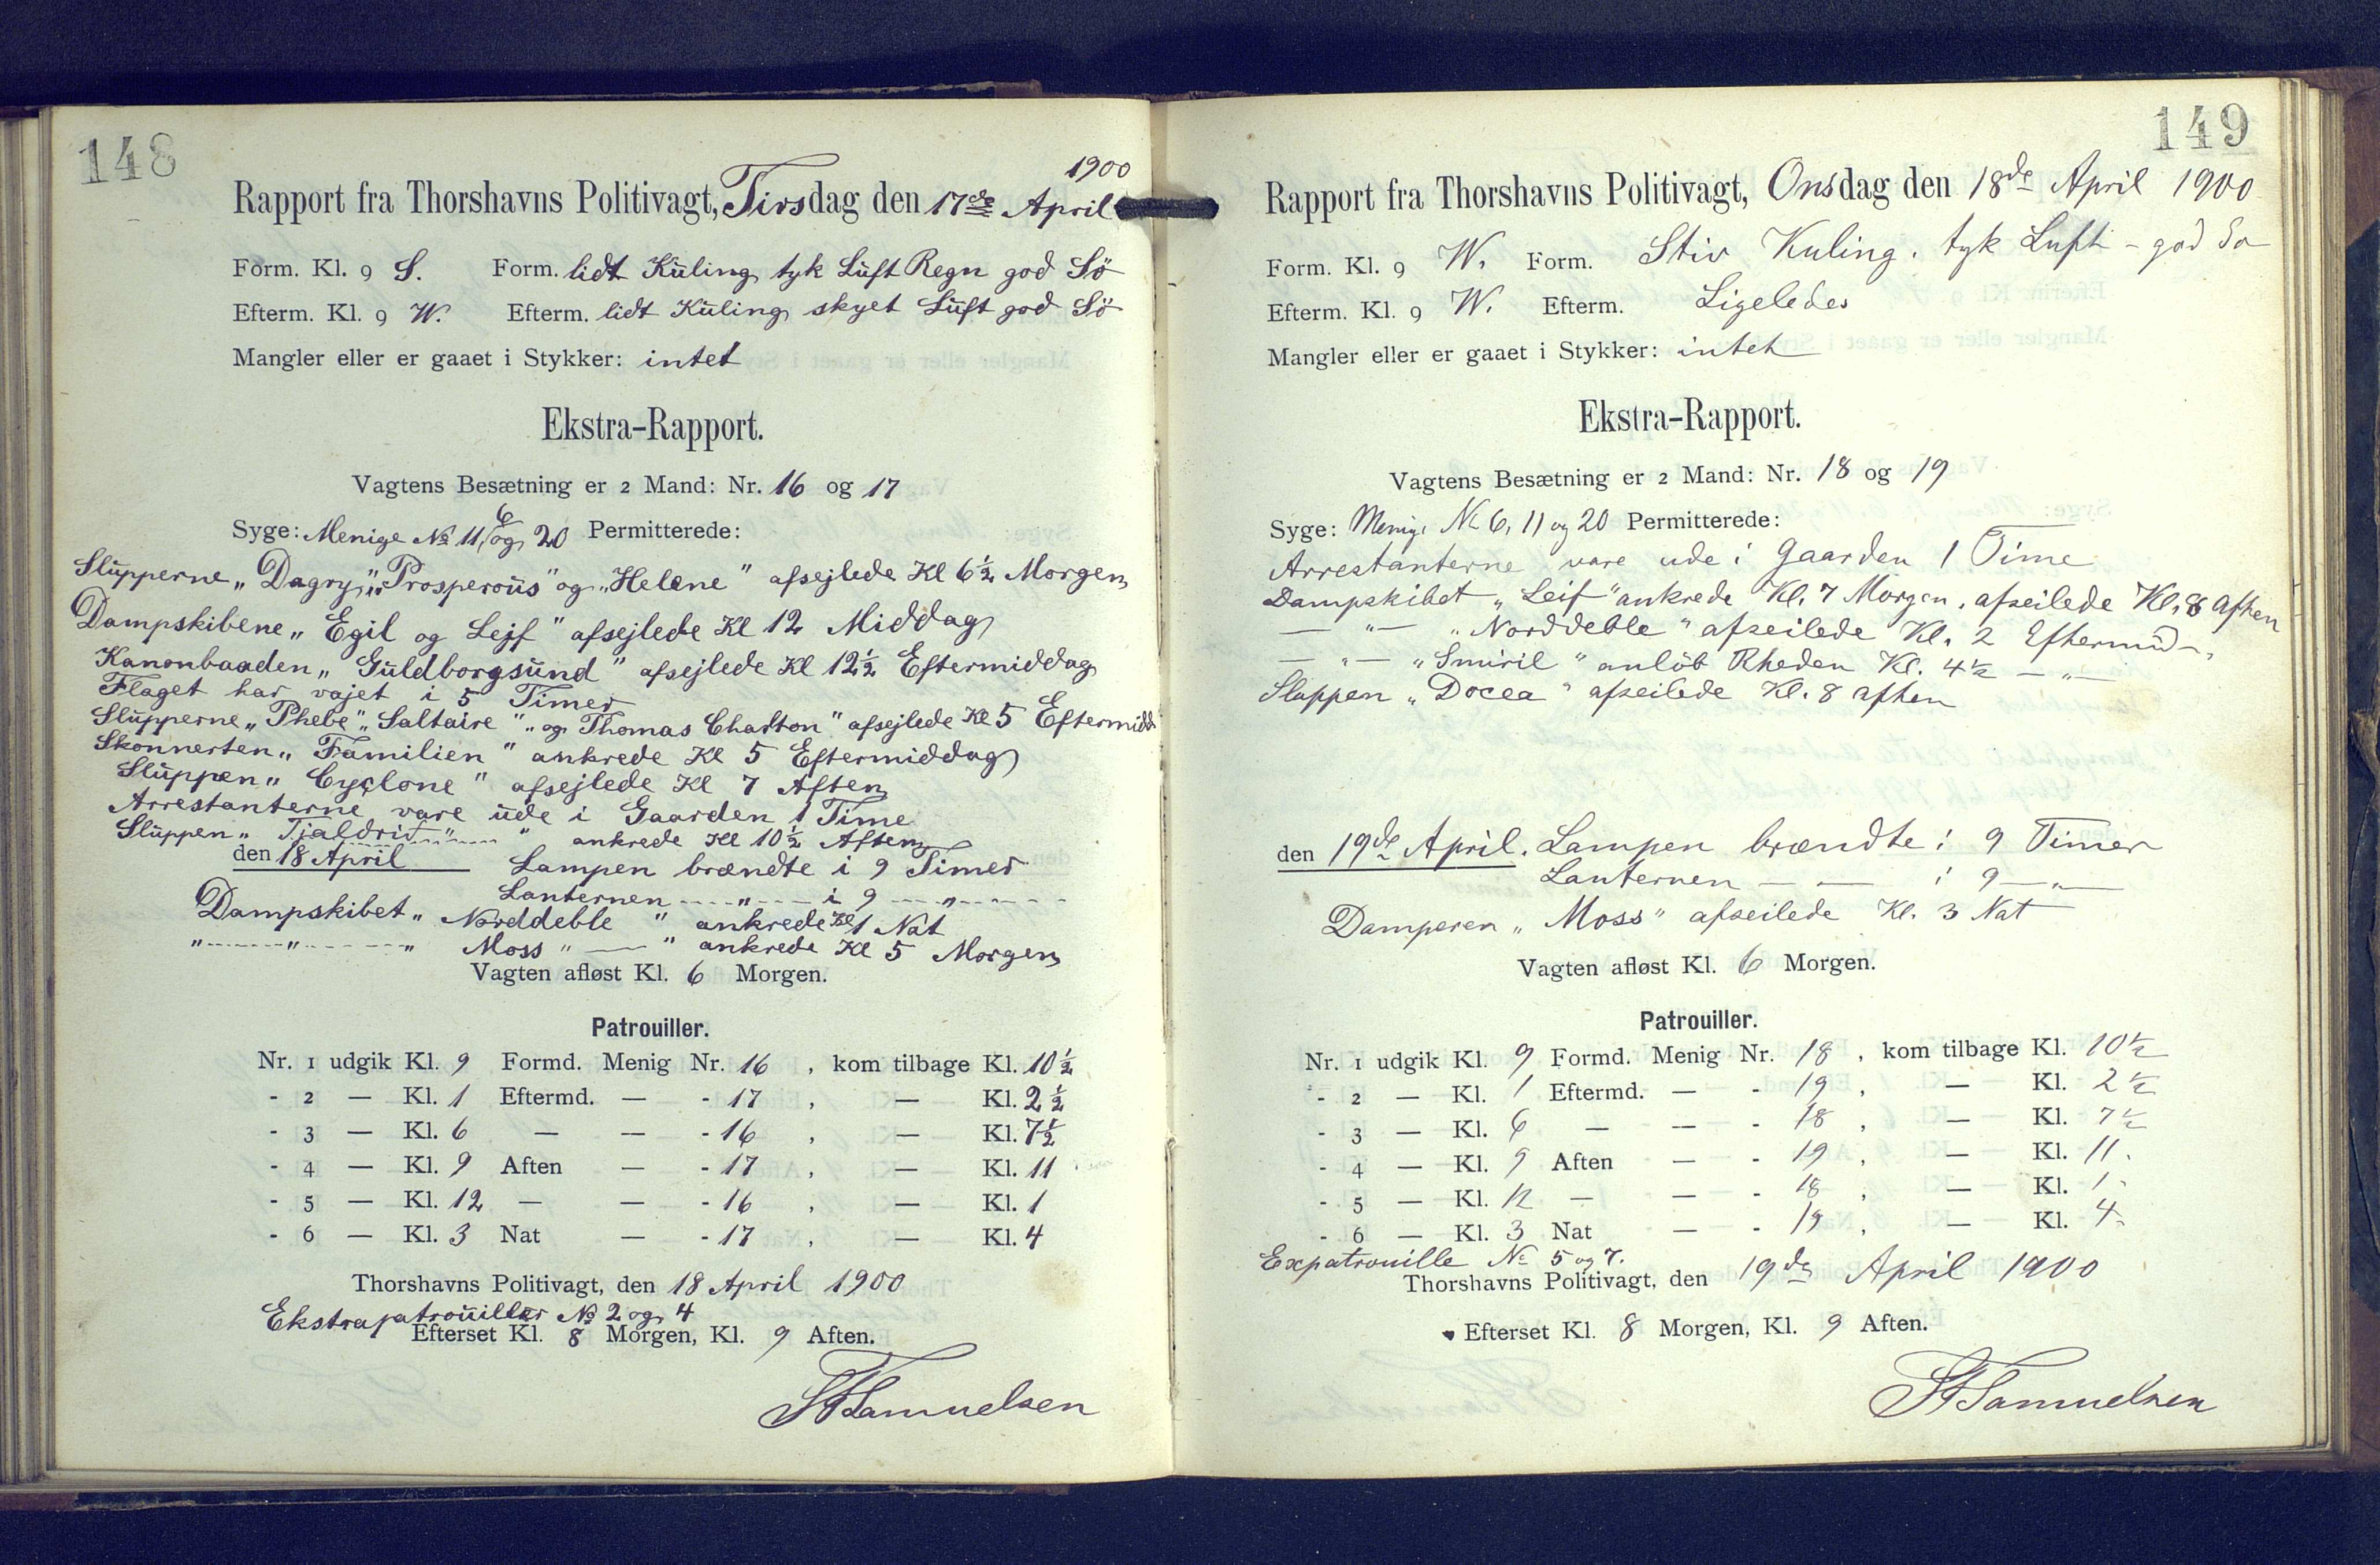 148
1900
Rapport fra Thorshavns Politivagt, Tirsdag den 17de April
Form. Kl. 9 S. Form. lidt Kuling tyk Luft Regn god Sö
Efterm. Kl. 9 W. Efterm. lidt Kuling skyet Luft god Sö
Mangler eller er gaaet i Stykker: intet
Ekstra-Rapport.
Vagtens Besætning er 2 Mand: Nr. 16 og 17
Syge: Menige No 11, 6 og 20 Permitterede:
Slupperne „Dagry", „Prosperous" og „Helene" afsejlede Kl 6½ Morgen
Dampskibene „Egil og Lejf" afsejlede Kl 12 Middag
Kanonbaaden „Guldborgsund" afsejlede Kl 12½ Eftermiddag
Flaget har vajet i 5 Timer
Slupperne „Phebe", „Saltaire" „og Thomas Charlton" afsejlede Kl 5 Eftermidd
Skonnerten „Familien" ankrede Kl 5 Eftermiddag
Sluppen „Cyclone" afsejlede Kl 7 Aften
Arrestanterne vare ude i Gaarden 1 Time
Sluppen „Tjaldrid" — " ankrede Kl 10½ Aften
den 18 April Lampen brændte i 9 Timer
Lanternen — " — i 9 — " —
Dampskibet „Norddeble" ankrede Kl 1 Nat
" — " — " Moss " — " ankrede Kl 5 Morgen
Vagten afløst Kl. 6 Morgen.
Patrouiller.
Nr. 1 udgik Kl. 9 Formd. Menig Nr. 16, kom tilbage Kl. 10½
- 2 — Kl. 1 Eftermd. — - 17, — Kl. 2½
- 3 — Kl. 6 — — - 16, — Kl. 7½
- 4 — Kl. 9 Aften — - 17, — Kl. 11
- 5 — Kl. 12 — — - 16, — Kl. 1
- 6 — Kl. 3 Nat — - 17, — Kl. 4
Thorshavns Politivagt, den 18 April 1900
Ekstrapatrouiller No 2 og 4
Efterset Kl. 8 Morgen, Kl. 9 Aften.
Samuelsen
149
Rapport fra Thorshavns Politivagt, Onsdag den 18de April 1900
Form. Kl. 9 W. Form. Stiv Kuling. tyk Luft - god So
Efterm. Kl. 9 W. Efterm. Ligeledes
Mangler eller er gaaet i Stykker: intet
Ekstra-Rapport.
Vagtens Besætning er 2 Mand: Nr. 18 og 19
Syge: Menige No 6, 11 og 20 Permitterede:
Arrestanterne vare ude i Gaarden 1 Time
Dampskibet „Leif" ankrede Kl. 7 Morgen, afseilede Kl. 8 Aften
— " — „Norddeble" afseilede Kl. 2 Eftermid-
— " — „Smiril" anlöb Rheden Kl. 4½ — " —
Sluppen „Docea" afseilede Kl. 8 aften
den 19de April. Lampen brændte i 9 Timer
Lanternen — — i 9 — " —
Damperen „Moss" afseilede Kl. 3 Nat
Vagten afløst Kl. 6 Morgen.
Patrouiller.
Nr. 1 udgik Kl. 9 Formd. Menig Nr. 18, kom tilbage Kl. 10½
- 2 — Kl. 1 Eftermd. — - 19, — Kl. 2½
- 3 — Kl. 6 — — - 18, — Kl. 7½
- 4 — Kl. 9 Aften — - 19, — Kl. 11.
- 5 — Kl. 12 — — - 18, — Kl. 1.
- 6 — Kl. 3 Nat — - 19, — Kl. 4.
Expatrouille No 5 og 7.
Thorshavns Politivagt, den 19de April 1900
Efterset Kl. 8 Morgen, Kl. 9 Aften.
Samuelsen